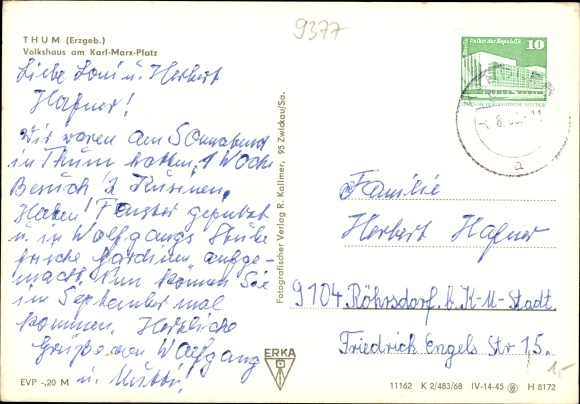 9377
THUM (Erzgeb.)
Volkshaus am Karl-Marx-Platz
Liebe Loni u. Herbert
Hafner!
Wir waren am Sonnabend
in Thum hatten, 1 Woche
Besuch 2 Kusinen,
Haben Fenster geputzt
u. in Wolfgangs Stube
frische Gardinen aufge-
macht. Nun können Sie
im September mal
kommen. Herzliche
Grüße von Wolfgang
u. Mutti!
EVP -,20 M
Fotografischer Verlag R. Kallmer, 95 Zwickau/Sa.
ERKA
Berlin Palast der Republik
10
8.
a
Familie
Herbert Hafner
9104 Röhrsdorf b. K-M-Stadt
Friedrich Engels Str 15.
1,-
11162 K 2/483/68 IV-14-45 H 8172